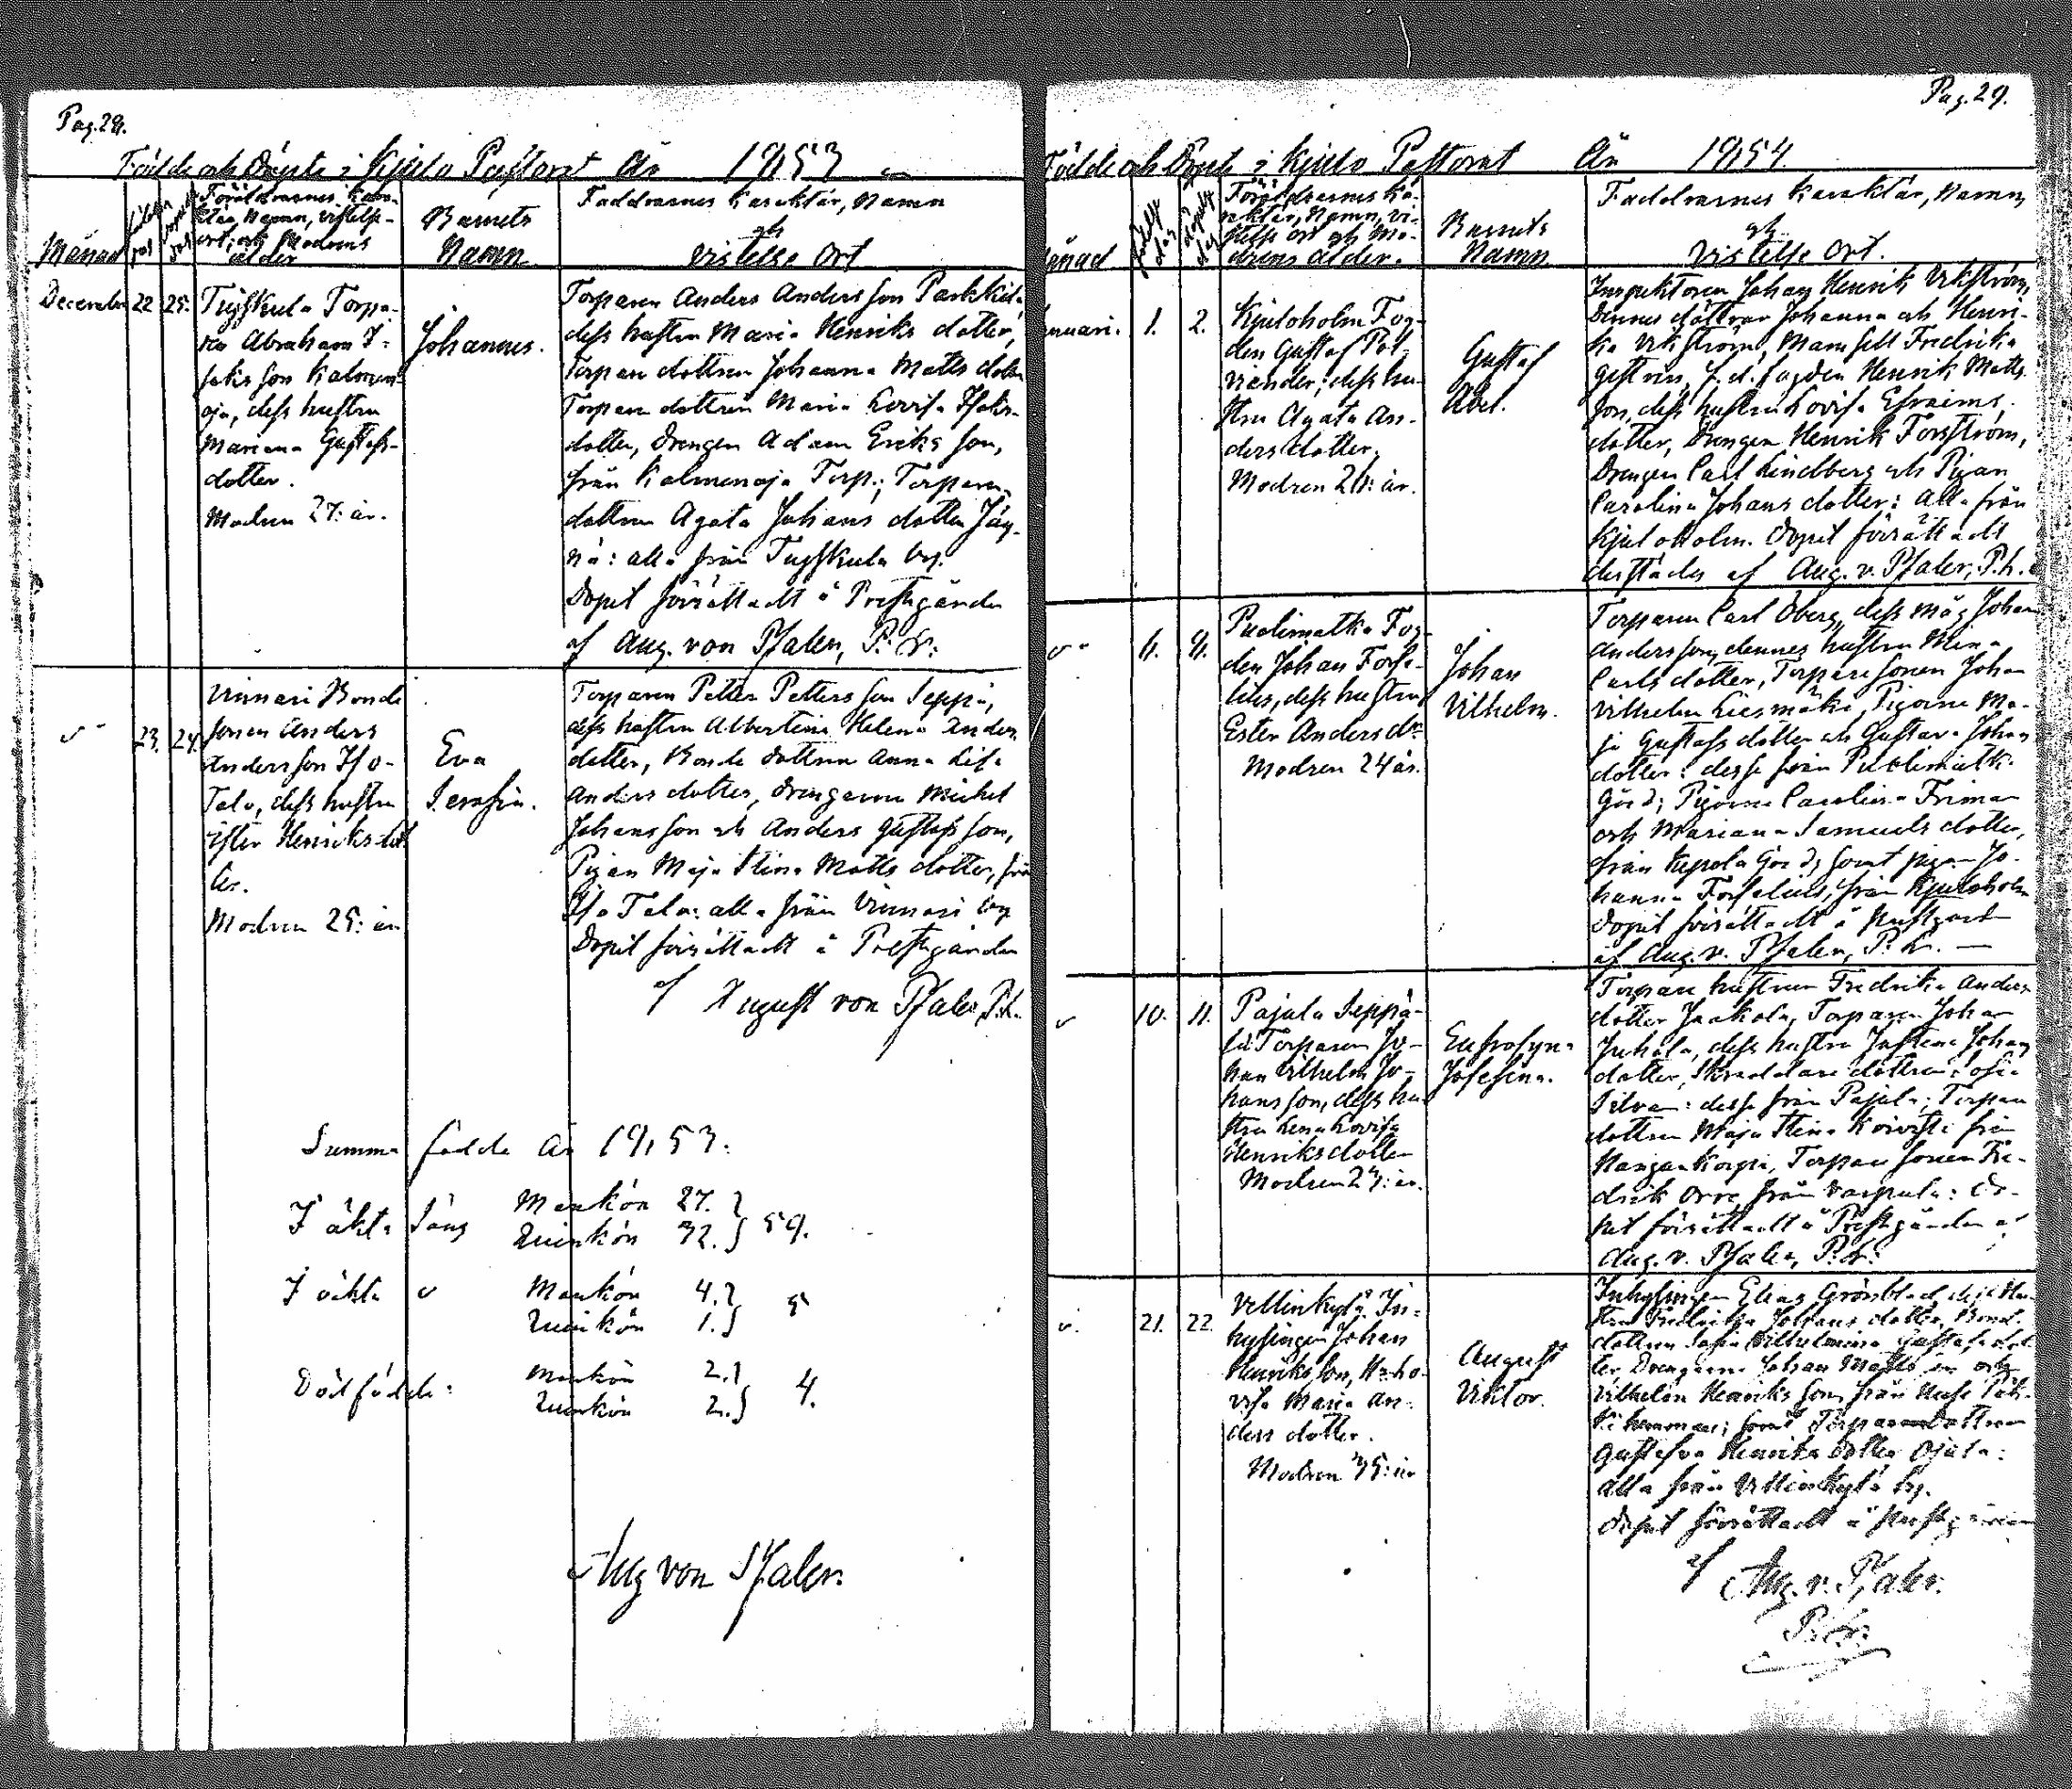 Pag. 28.
Födde och Döpte i Kjulo Pastorat År 1853
Månad
Föräldrarnes Karak-
tär, Namn, vistelse-
ort, och Modrens
ålder
Barnets
Namn
Faddrarnes Karaktär, Namn
och
vistelse Ort
December 22 25.
Tujskula Torpa-
ren Abraham I-
saks son Kalmen-
oja, dess hustru
Mariana Gustafs-
dotter.
Modren 27: år.
Johannes.
Torparen Anders Andersson
dess hustru Maria Henriks dotter,
Torpare dottren Johanna Matts dotter
Torpare dottren Maria Lovisa Isaks-
dotter, Drengen Adam Eriks son,
från Kalmenoja Torp; Torpare-
dottren Agata Johans dotter
alla från Tujskula by.
Dopet förrättadt å Prestgården
af Aug. von Pfaler, P. L.
23. 24.
Vinnari Bonde
sonen Anders
Andersson Iso-
Talo, dess hustru
Ester Henriks dot
ter.
Modren 25: år
Eva
Serafia.
Torparen Petter Petters son Seppä,
dess hustru Albertina Helena Anders
dotter, Bonde dottren Anna Lisa
Anders dotter, Drengarne Michel
Johansson och Anders Gustafs son,
Pigan Maja Stina Matts dotter, från
Iso Talo: alla från Vinnari by
Dopet förrättadt å Prestgården
af August von Pfaler P.L.
Summa födde År 1853:
I äkta Säng Mankön 27.
Quinkön 32. 59.
I oäkta Mankön 4.
Quinkön 1. 5
Dödfödde: Mankön 2.
Quinkön 2. 4.
Aug von Pfaler.
Pag. 29.
Födde och Döpte i Kjulo Pastorat År 1854
Månad
Föräldrarnes Ka-
raktär, Namn, vi-
stelse ort och Mo-
drens ålder.
Barnets
Namn
Faddrarnes Karaktär, Namn
och
Vistelse Ort.
Januari. 1. 2.
Kjuloholm Fog-
den Gustaf Pol-
viander; dess hu-
stru Agata An-
ders dotter.
Modren 28: år.
Gustaf
Abel.
Inspektoren Johan Henrik Vikström,
dennes döttrar Johanna och Henri-
ka Vikström, Mamsell Fredrika
f.d. fogden Henrik Matts
son, dess hustru Lovisa Efraims
dotter, Drengen Henrik Forsström,
Drengen Carl Lindberg och Pigan
Carolina Johans dotter: alla från
Kjuloholm. Dopet förrättadt
derstädes af Aug. v. Pfaler, P.L.
Puolimatka Fog-
den Johan Forse-
lius, dess hustru
Ester Anders dr
Modren 24 år.
Johan
Vilhelm.
Torparen Carl Öberg, dess måg Johan
Andersson, dennes hustru Mina
Carls dotter, Torpare sonen Johan
Vilhelm Liesmäki, Pigorne Ma-
ja Gustafs dotter och Gustava Johans
dotter: desse från Puolimatka
Gård; Pigorne Carolina Friman
och Mariana Samuels dotter,
från Kepola Gård; samt pigan Jo-
hanna Forselius, från Kjuloholm
Dopet förrättadt å Prestgården
af Aug. v. Pfaler, P. L.
10. 11.
Pajula Seppä-
lä Torparen Jo-
han Vilhelm Jo-
hansson, dess hu-
stru Lena Lovisa
Henriks dotter
Modren 23: år.
Eufrosyna
Josefina.
Torpare hustrun Fredrika Anders
dotter Jaakola, Torparen Johan
Juhola, dess hustru Justina Johans
dotter, Skräddare dottren Sofia
Silvan: desse från Pajula; Torpare
dottren Maja Stina Koivisto från
Torpare sonen Fre-
drik Orre från Vaspula: Do-
pet förrättadt å Prestgården af
Aug. v. Pfaler, P.L.
21. 22.
Vellinkylä In-
hysingen Johan
Henriks son,
visa Maria An-
ders dotter.
Modren 35: år
August
Viktor.
Inhysingen Elias Grönblad, dess Hu-
stru Fredrika Johans dotter, Bond-
dottren Sofia Vilhelmina Gustafs dot
ter, Drengarne Johan Mattsson och
Vilhelm Henriks son, från
samt Torpare dottren
Gustafva Henriks dotter Ojala:
alla från Vellinkylä by.
Dopet förrättadt å Prestgården
af Aug. v. Pfaler.
P. L.